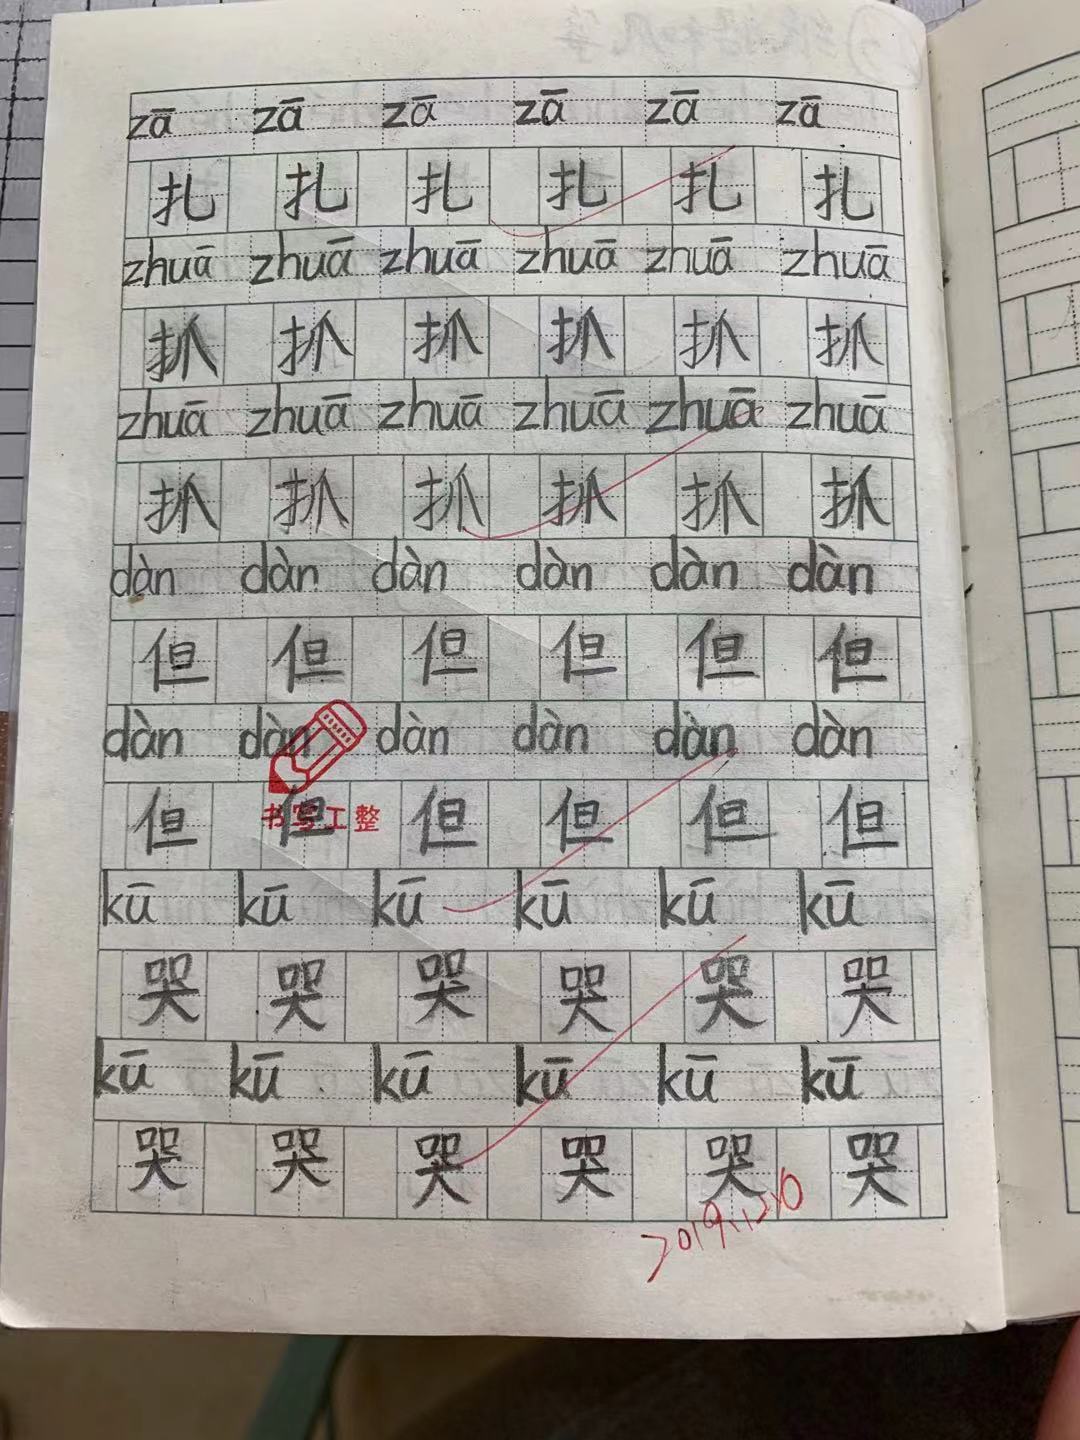 zā zā zā zā zā zā
扎 扎 扎 扎 扎 扎
zhuā zhuā zhuā zhuā zhuā zhuā
抓 抓 抓 抓 抓 抓
zhuā zhuā zhuā zhuā zhuā zhuā
抓 抓 抓 抓 抓 抓
dàn dàn dàn dàn dàn dàn
但 但 但 但 但 但
dàn dàn dàn dàn dàn dàn
但 但 但 但 但 但
书写工整
kū kū kū kū kū kū
哭 哭 哭 哭 哭 哭
kū kū kū kū kū kū
哭 哭 哭 哭 哭 哭